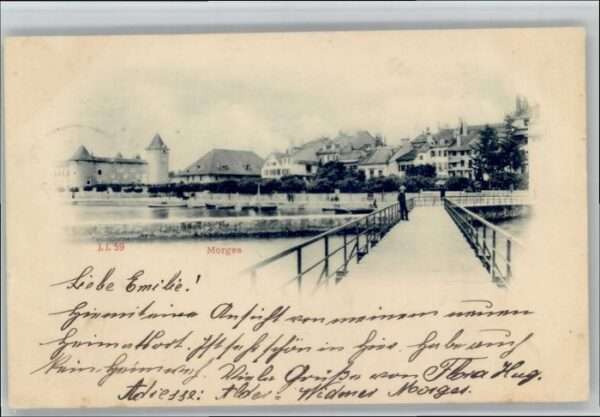 J.J. 59
Morges
Liebe Emilie!
Hiemit eine Ansicht von meinem neuen
Heimathort. Ist sehr schön in hier. Habe auch
kein Heimweh. Viele Grüße von Flora Hug.
Adresse: Ales: Widmer Morges.